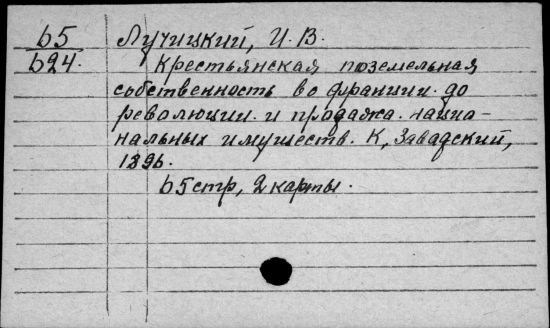 65
624.
Лучицкий, И. В.
Крестьянская поземельная
собственность во франции до
революции и продажа нацио-
нальных имуществ. К, Завадский,
1896.
65 стр, 2 карты.